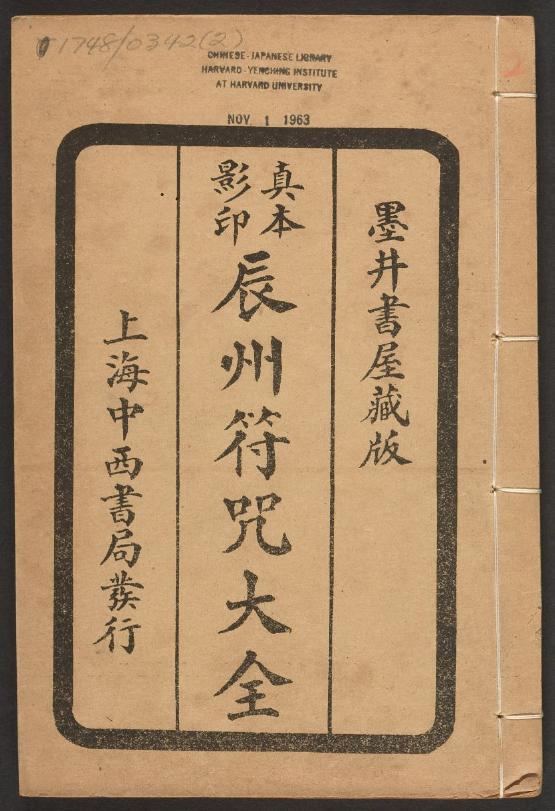 1748/0342(2)
CHINESE-JAPANESE LIBRARY
HARVARD-YENCHING INSTITUTE
AT HARVARD UNIVERSITY
NOV 1 1963
墨井書屋藏版
真本
影印
辰州符咒大全
上海中西書局發行